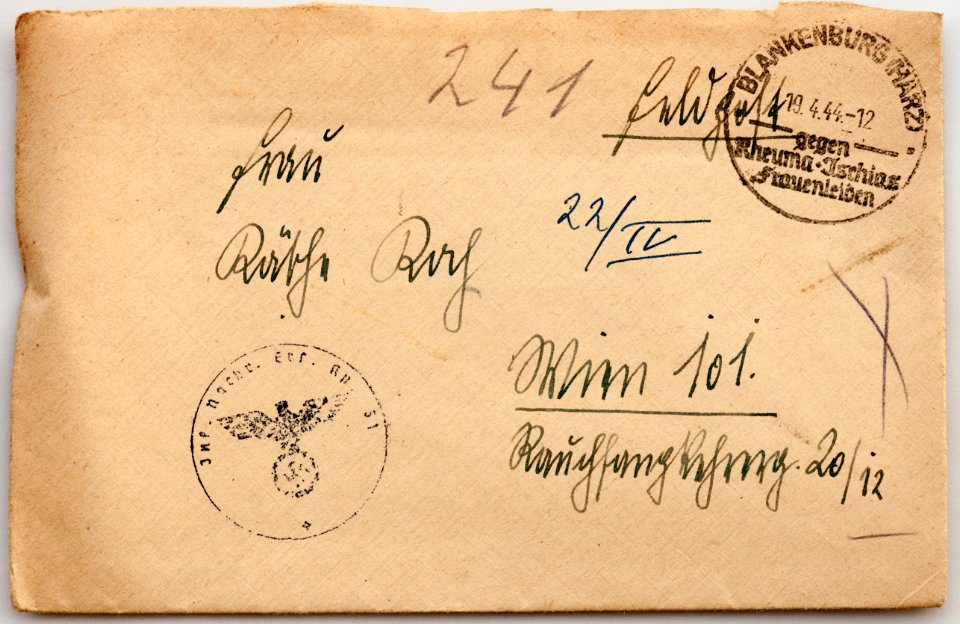 241
Feldpost
BLANKENBURG (HARZ)
19.4.44.-12
gegen
Rheuma·Ischias
Frauenleiden
Frau
Käthe Koch
22/IV
Wien 101.
Rauchfangkehrerg. 20/12
Inf. Nachr. Ers.